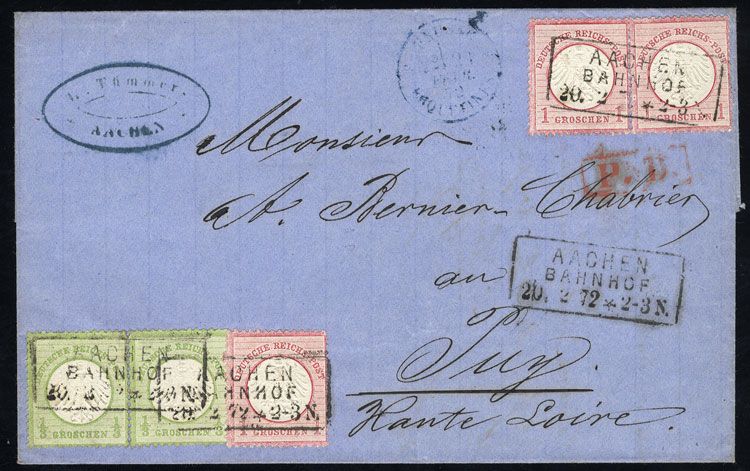 DEUTSCHE REICHS-POST
DEUTSCHE REICHS-POST
1 GROSCHEN 1
GROSCHEN 1
AACHEN
BAHNHOF
20. 2 7 * 2-3
Tümmer
AACHEN
P.D.
Monsieur
A. Bernier-Chabrier
au
Puy.
Haute Loire.
AACHEN
BAHNHOF
20. 2 72 * 2-3 N.
DEUTSCHE REICHS-POST
DEUTSCHE REICHS-POST
DEUTSCHE REICHS-POST
AACHEN
BAHNHOF
20. 2 7
AACHEN
BAHNHOF
20. 2 72 * 2-3 N.
1/3 GROSCHEN 1/3
1/3 GROSCHEN 1/3
1 GROSCHEN 1